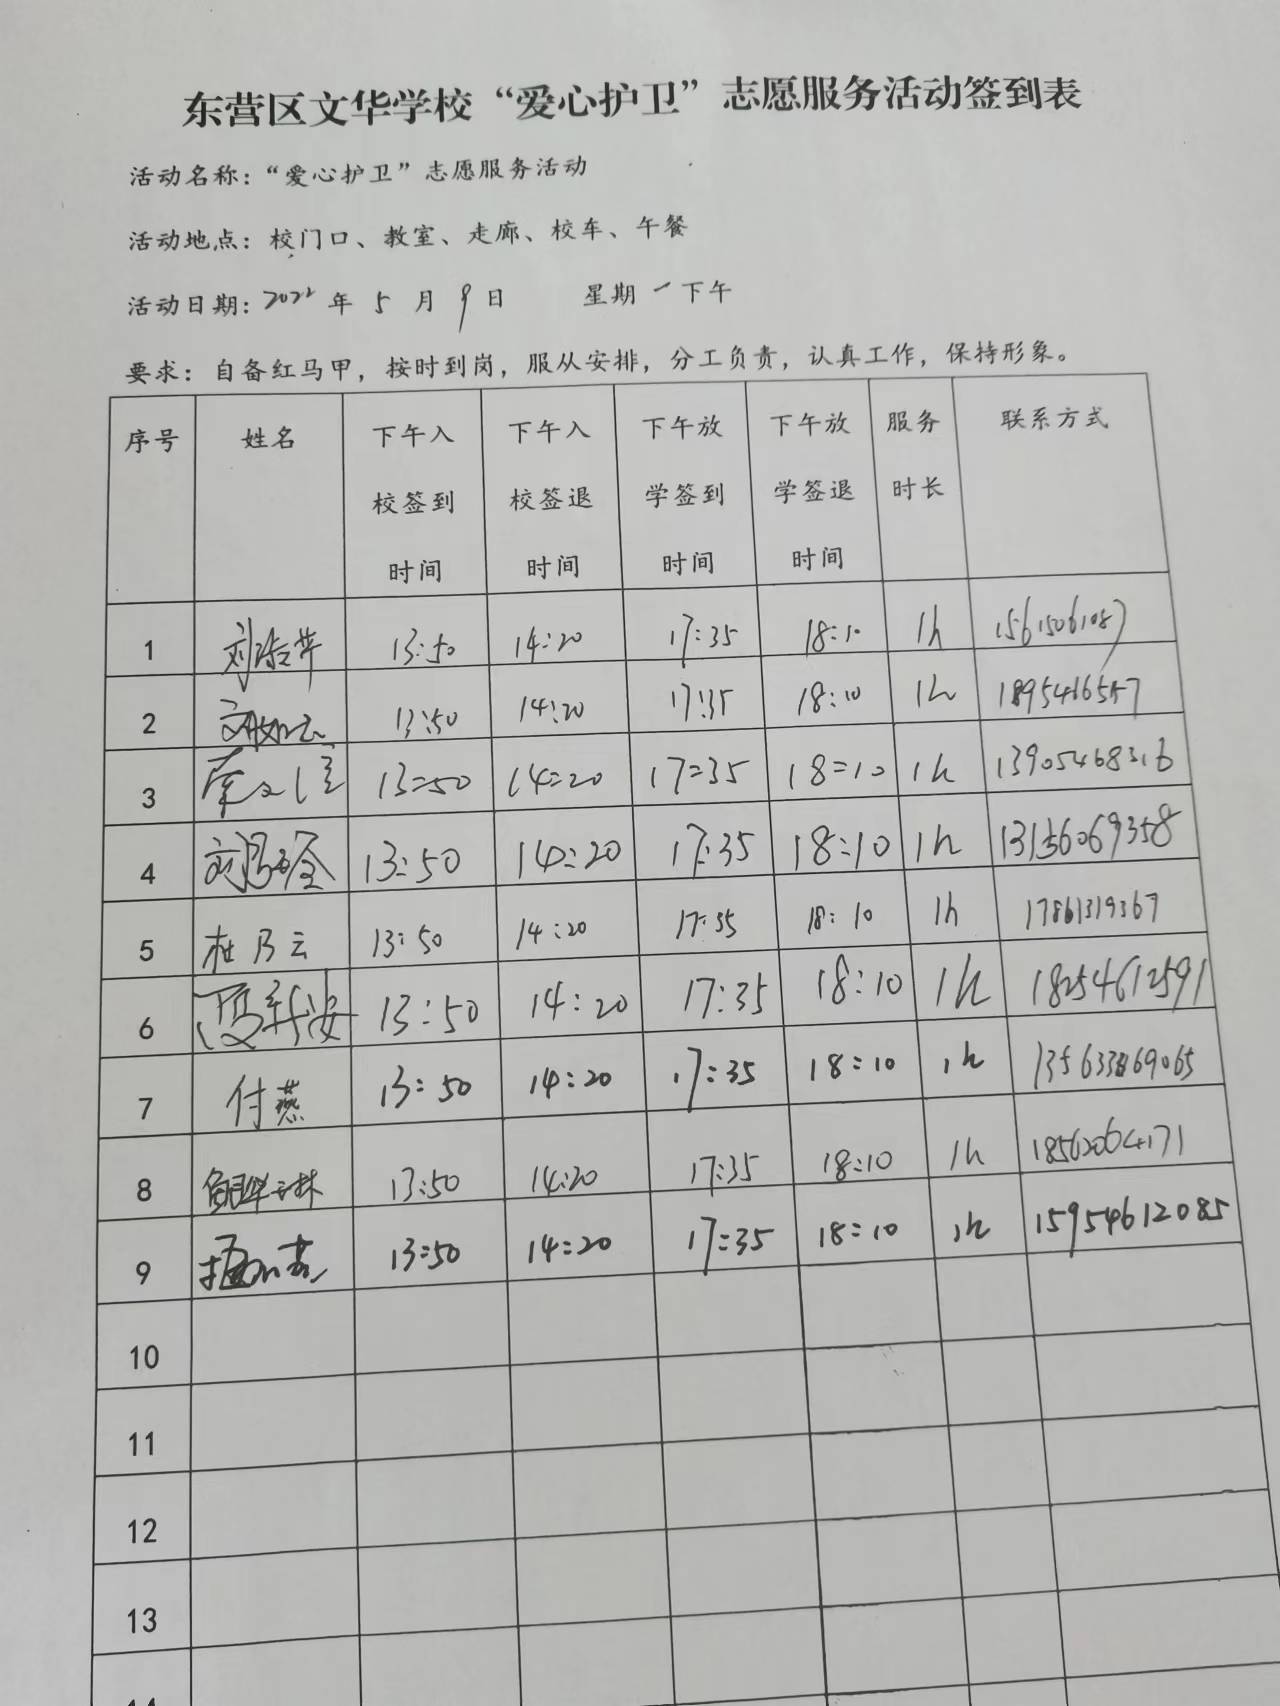 东营区文华学校“爱心护卫”志愿服务活动签到表
活动名称：“爱心护卫”志愿服务活动
活动地点：校门口、教室、走廊、校车、午餐
活动日期：2022年 5 月 9 日 星期一下午
要求：自备红马甲，按时到岗，服从安排，分工负责，认真工作，保持形象。
序号 姓名 下午入校签到时间 下午入校签退时间 下午放学签到时间 下午放学签退时间 服务时长 联系方式
1 13:50 14:20 17:35 18:10 1h 15615061087
2 13:50 14:20 17:35 18:10 1h
3 13:50 14:20 17:35 18:10 1h 13905468316
4 13:50 14:20 17:35 18:10 1h 13156069358
5 杜乃云 13:50 14:20 17:35 18:10 1h 17861319367
6 13:50 14:20 17:35 18:10 1h 18254612591
7 付燕 13:50 14:20 17:35 18:10 1h
8 13:50 14:20 17:35 18:10 1h 18562064171
9 13:50 14:20 17:35 18:10 1h 15954612085
10
11
12
13